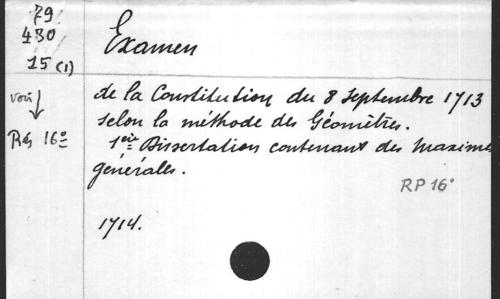 79
430
15 (1)
voir
Rés 16º
Examen
de la Constitution du 8 Septembre 1713
selon la méthode des Géomètres.
1ère Dissertation contenant des Maximes
générales.
RP 16º
1714.